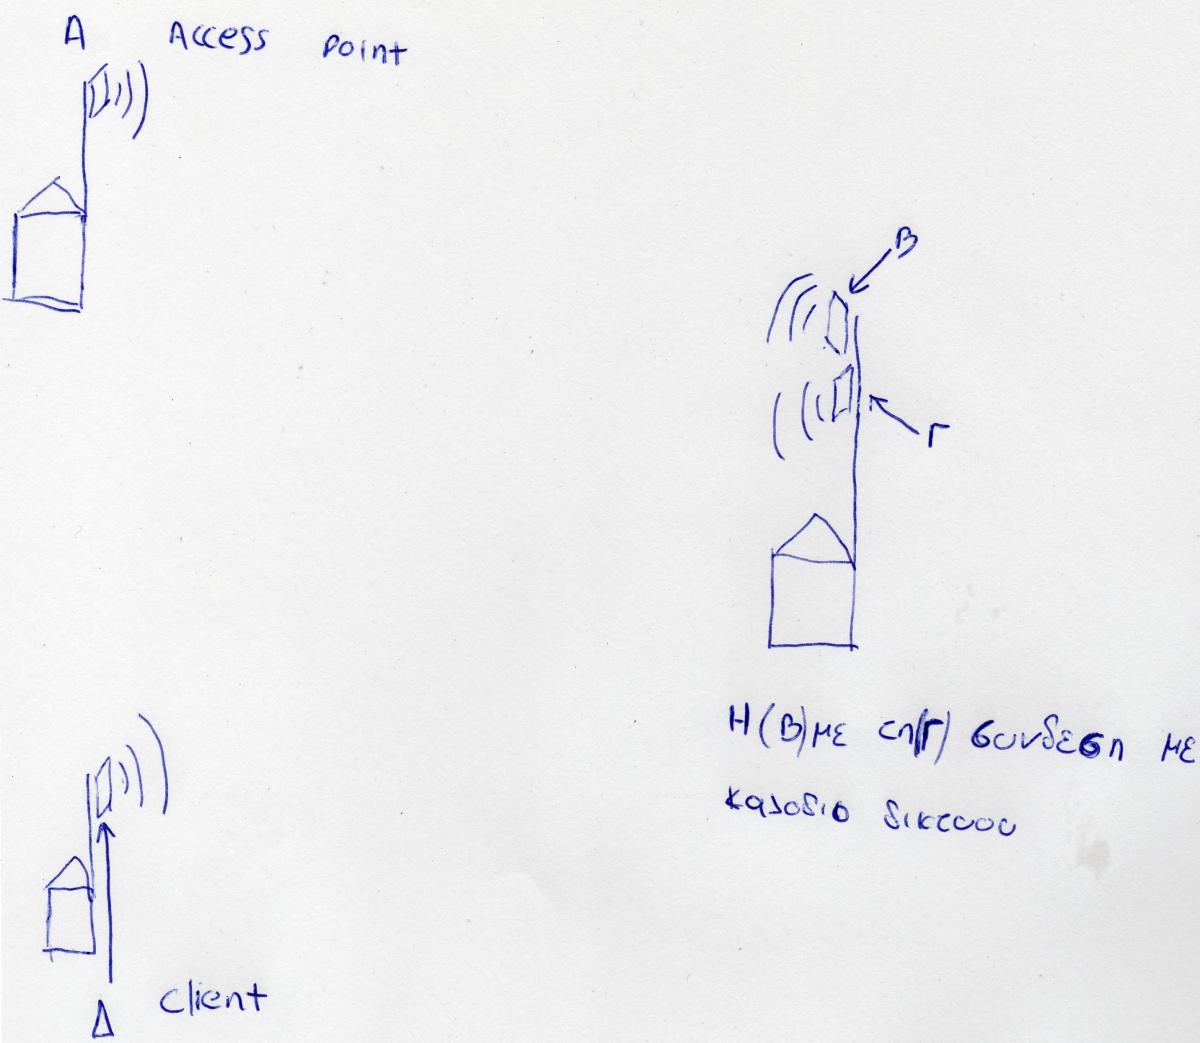 A Access point
B
Γ
Η (Β) με τη (Γ) συνδεση με
καλοδιο δικτυου
Δ client